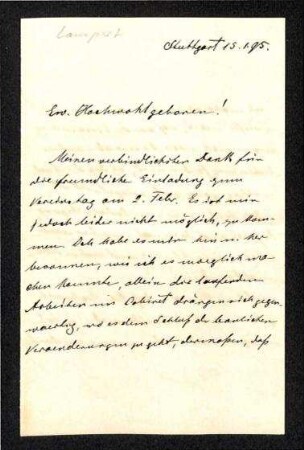 Lampert
Stuttgart 15.1.95.
Ew. Hochwohlgeboren!
Meinen verbindlichsten Dank für
die freundliche Einladung zum
Vereinstag am 2. Febr. Es ist mir
jedoch leider nicht möglich, zu kom-
men. Ich habe es mir hin u. her
besonnen, wie ich es moeglich ma-
chen koennte, allein die laufenden
Arbeiten im Cabinet drängen sich gegen-
waertig, wo es dem Schluß der baulichen
Veraenderungen zu geht, dermaßen, daß